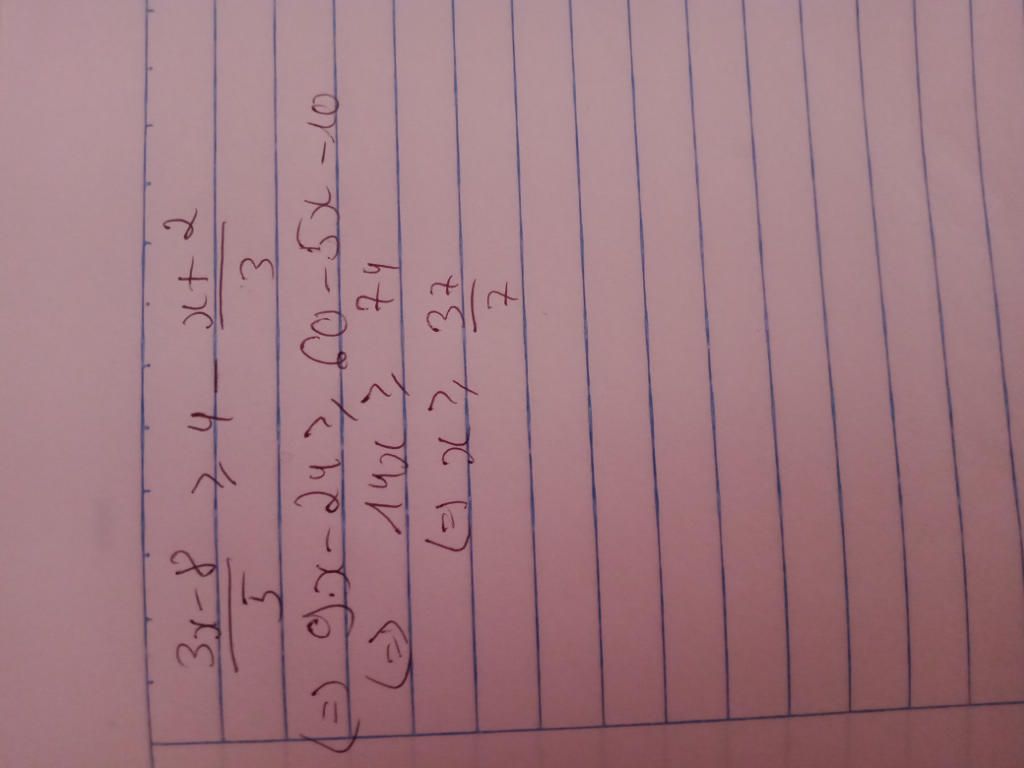 3x-8/5 ≥ 4 - x+2/3
(=) 9.x - 24 ≥ 60 - 5x - 10
(=) 14x ≥ 74
(=) x ≥ 37/7